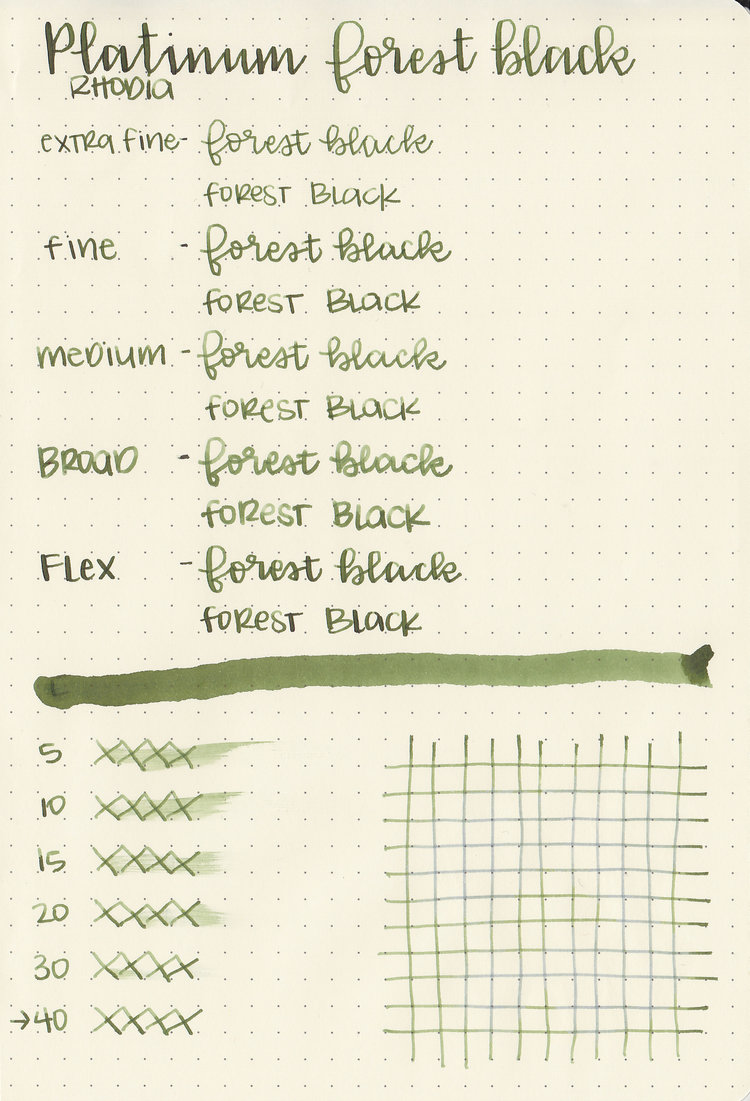 Platinum forest black
RHODIA
extra fine - forest black
forest Black
fine - forest black
forest Black
medium - forest black
forest Black
Broad - forest black
forest Black
Flex - forest black
forest Black
5 XXXX
10 XXXX
15 XXXX
20 XXXX
30 XXXX
→40 XXXX